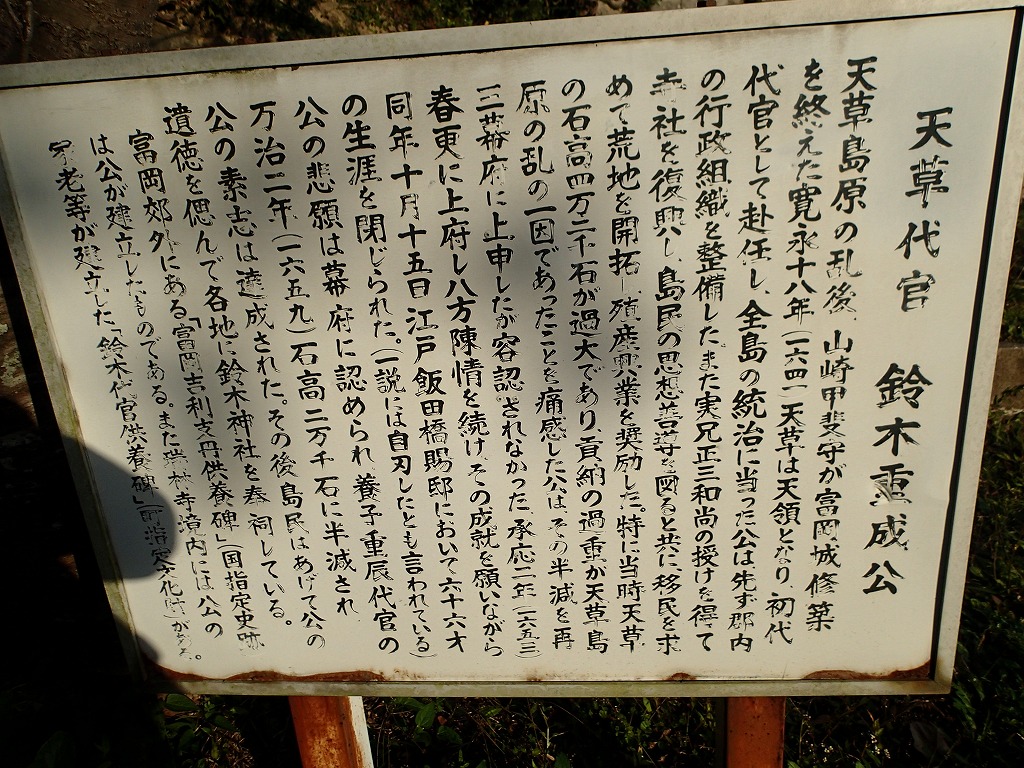 天草代官　鈴木重成公
天草島原の乱後、山崎甲斐守が富岡城修築
を終えた寛永十八年(一六四一)天草は天領となり、初代
代官として赴任し、全島の統治に当った公は先ず郡内
の行政組織を整備した。また実兄正三和尚の授けを得て
寺社を復興し、島民の思想善導を図ると共に移民を求
めて荒地を開拓し、殖産興業を奨励した。特に当時天草
の石高四万二千石が過大であり、貢納の過重が天草島
原の乱の一因であったことを痛感した公は、その半減を再
三幕府に上申したが容認されなかった。承応二年(一六五三)
春更に上府し八方陳情を続け、その成就を願いながら
同年十月十五日江戸飯田橋賜邸において六十六才
の生涯を閉じられた。(一説には自刃したとも言われている)
公の悲願は幕府に認められ、養子重辰代官の
万治二年(一六五九)石高二万千石に半減され
公の素志は達成された。その後島民はあげて公の
遺徳を偲んで各地に鈴木神社を奉祠している。
富岡郊外にある「富岡吉利支丹供養碑」(国指定史跡
は公が建立したものである。また瑞林寺境内には公の
家老等が建立した「鈴木代官供養碑」(町指定文化財)がある。